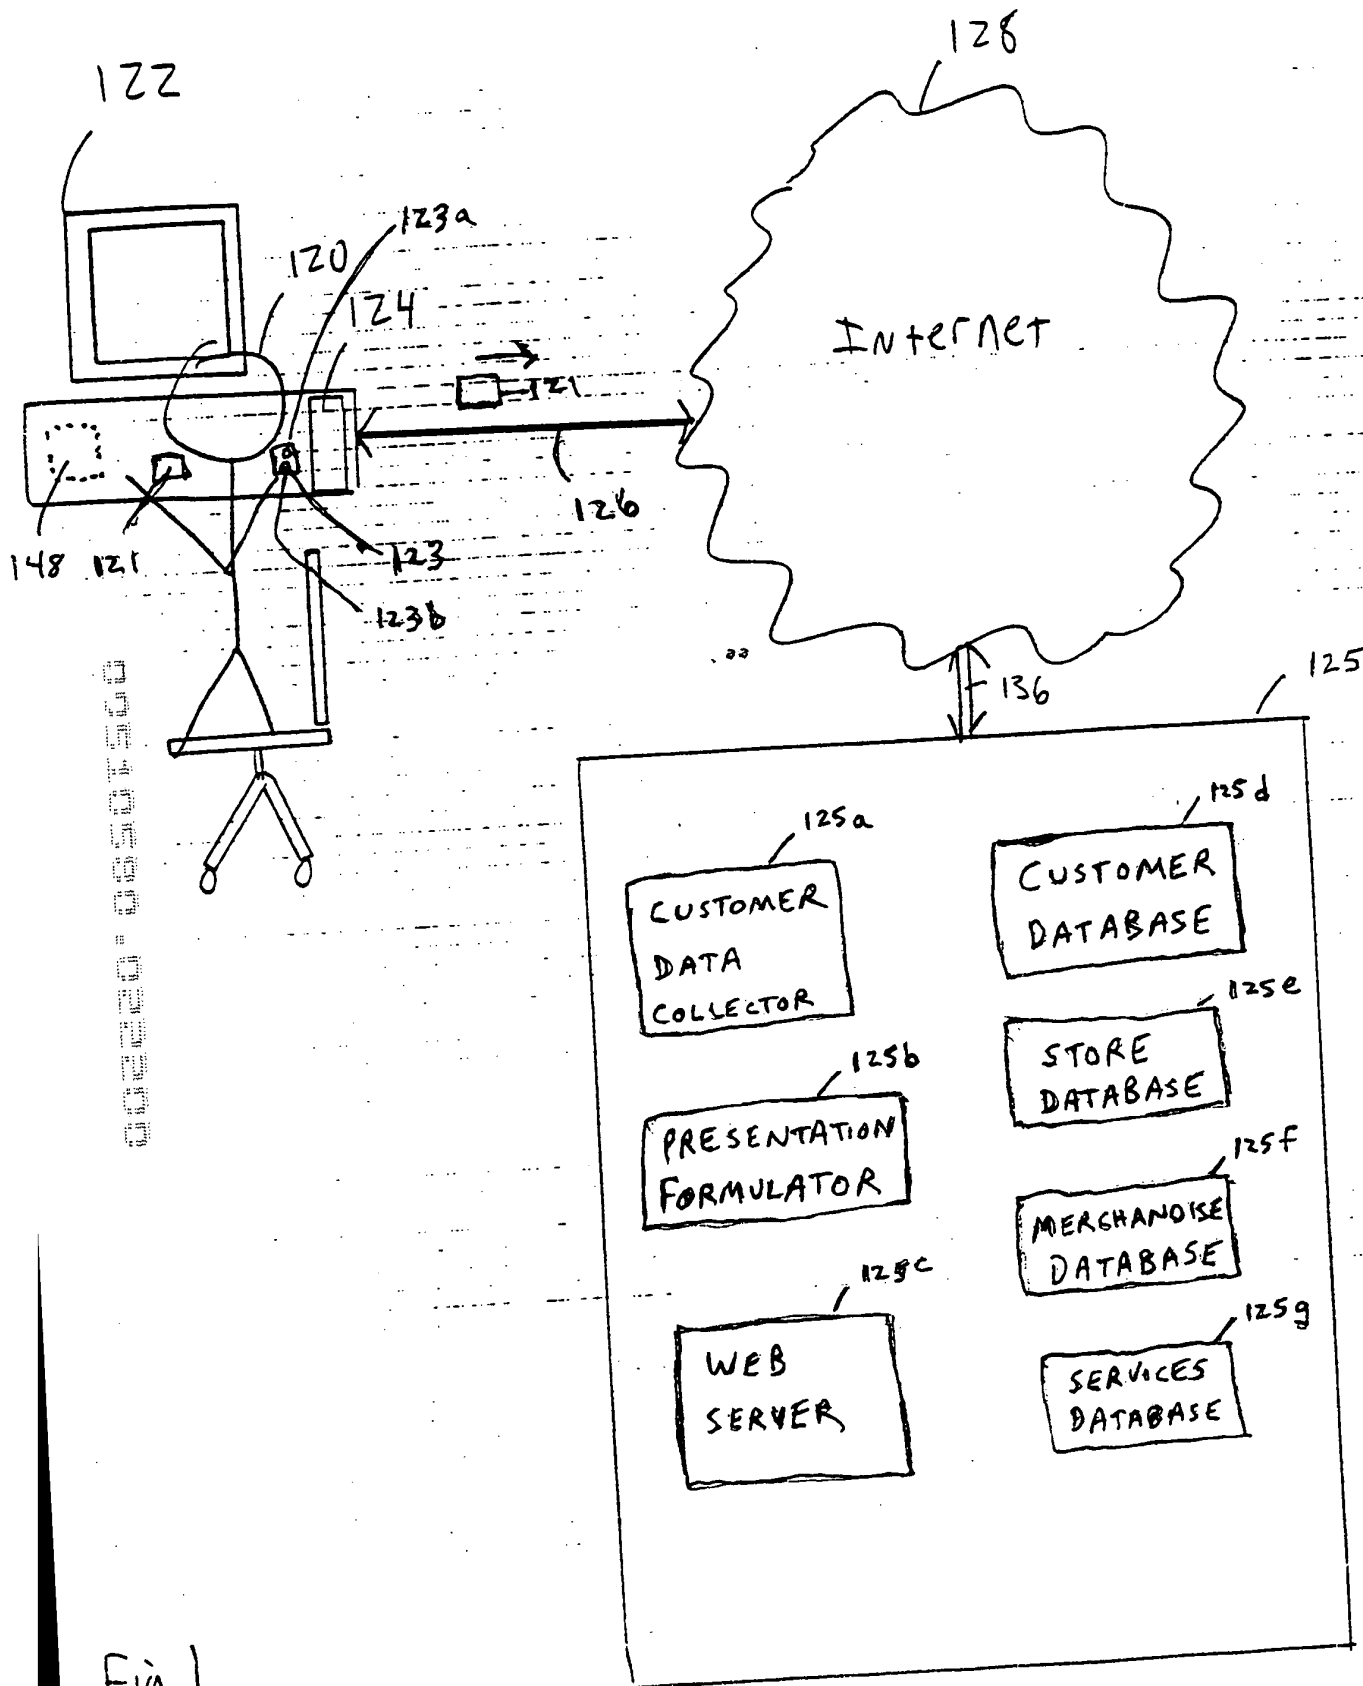 128
122
123a
120
124
Internet
121
126
148
121
123
123b
136
125
125a
125d
CUSTOMER
DATA
COLLECTOR
CUSTOMER
DATABASE
125e
STORE
DATABASE
125b
PRESENTATION
FORMULATOR
125f
MERCHANDISE
DATABASE
125c
WEB
SERVER
125g
SERVICES
DATABASE
09510590.022200
Fig 1